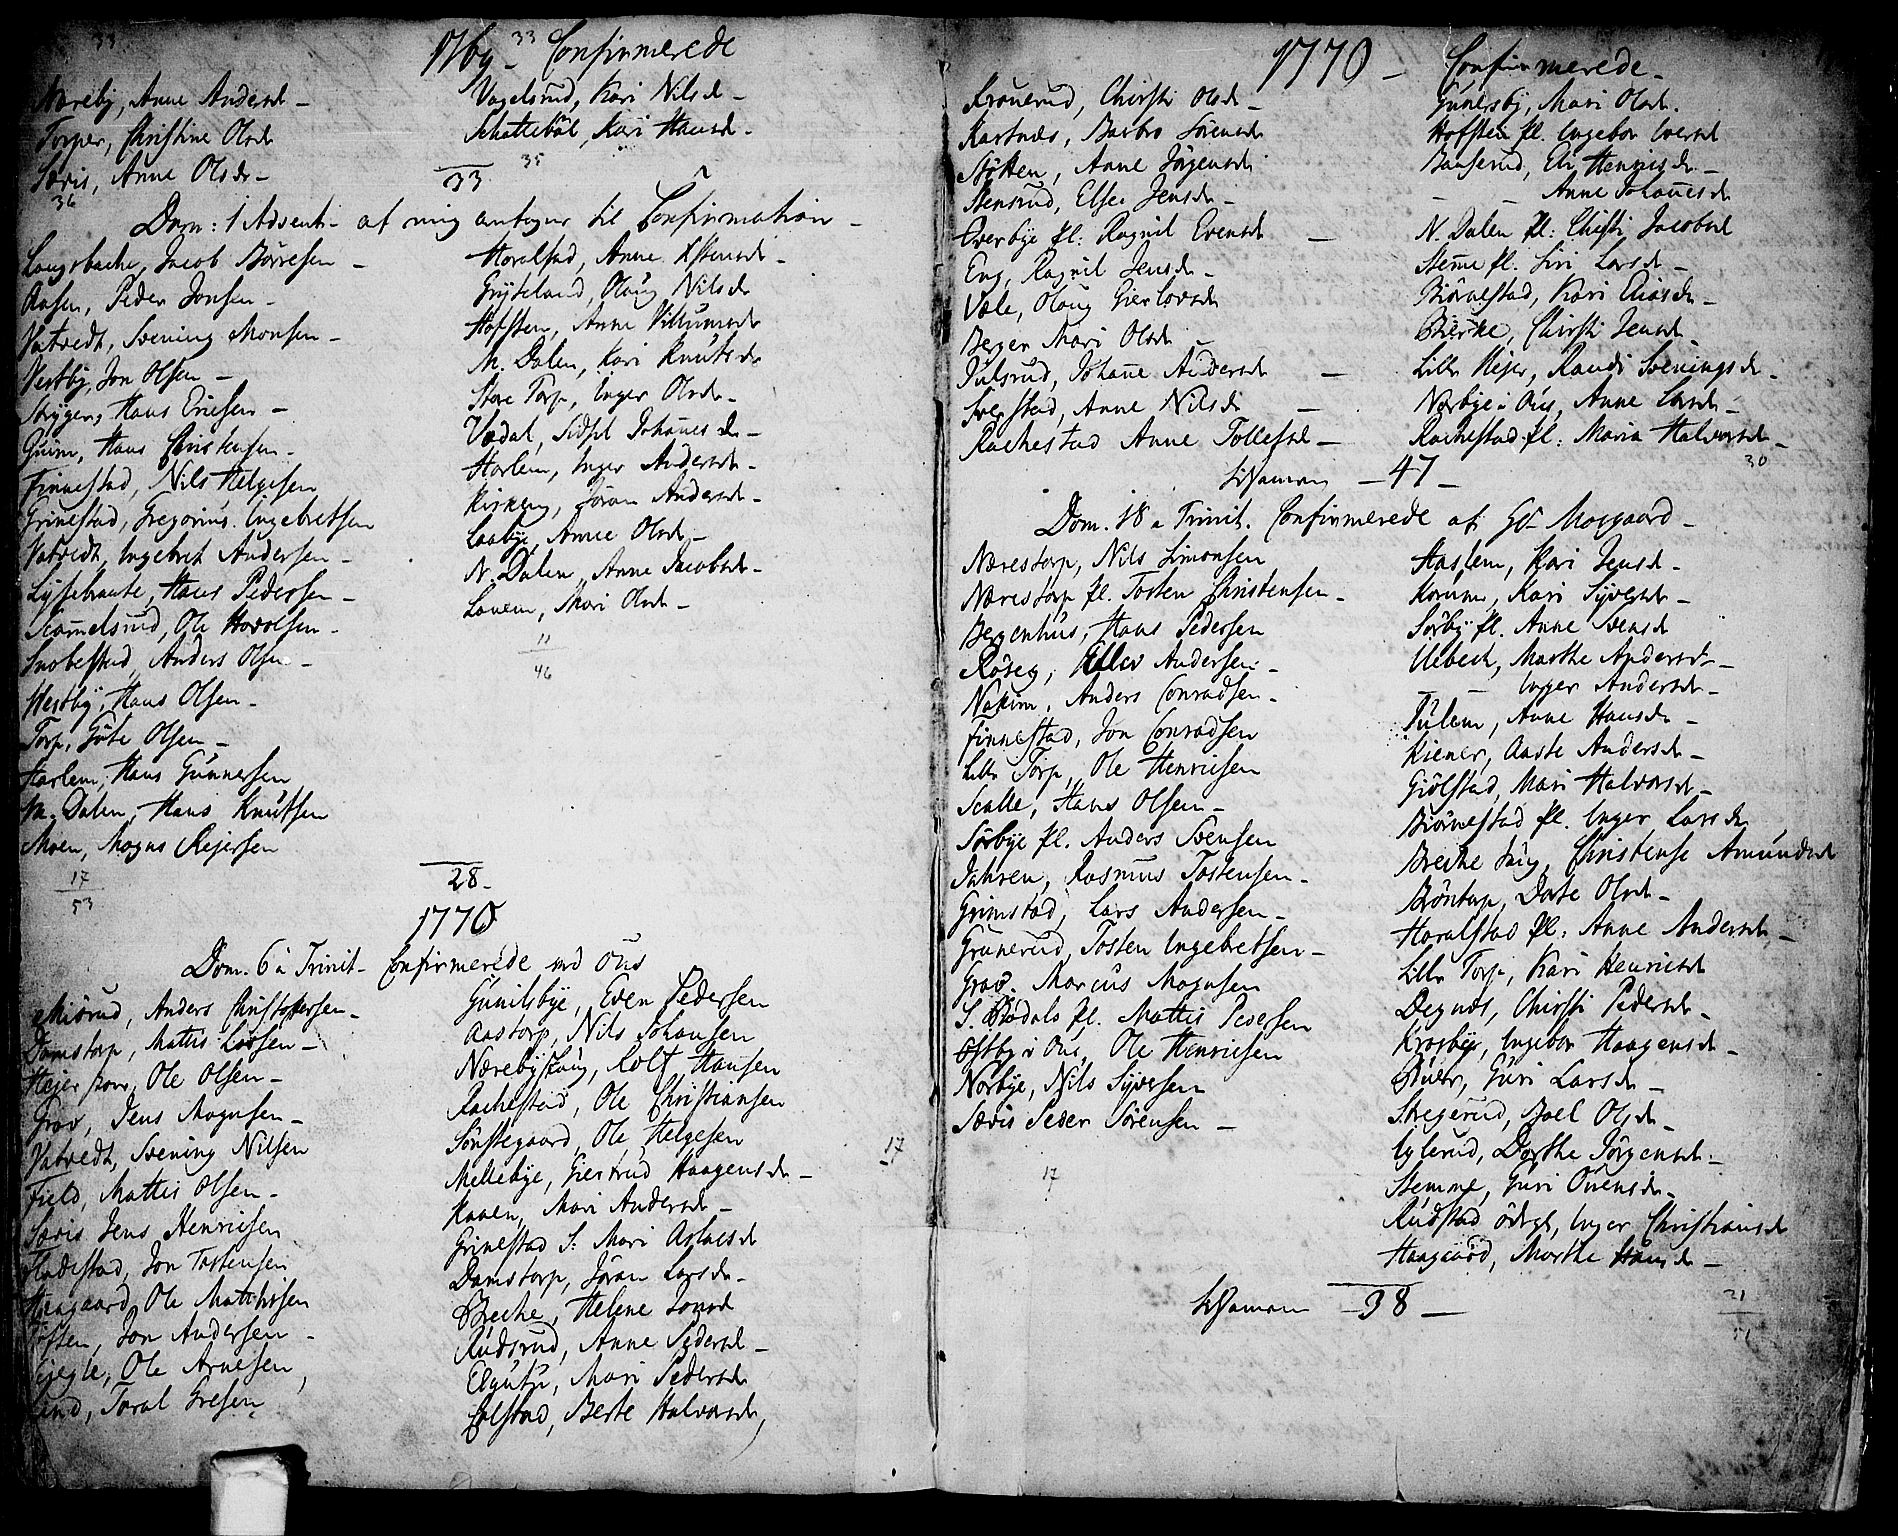 33
1769 - 33 Confirmerede
Nærebÿ, Anne Andersd -
Torper, Christine Olsd
Særis, Anne Olsdr -
36
Vogelsrud, Kari Nilsd -
Schottebøl, Kari Hansd -
35
33
Dom: 1 Advent - af mig antagne til Confirmation -
Langsbache, Jacob Børresen -
Aasen, Peder Jonsen -
Vatvedt, Svening Monsen -
Vestbÿ, Jon Olsen -
Strÿger, Hans Ericsen -
Guim, Hans Christensen -
Finnestad, Nils Helgesen
Grinestad, Gregorius Ingebretsen
Vatvedt, Ingebret Andersen -
Lÿssebraate, Hans Pedersen -
Scammelsrud, Ole Havolsen -
Snobestad, Anders Olsen -
Westbÿ, Hans Olsen -
Torp, Gúte Olsen -
Harlem, Hans Gunnersen
M. Dalen, Hans Knutsen
Moen, Mogns Rejersen
17
53
Haralstad, Anne Estensd -
Grÿteland, Oloug Nilsd
Hofsten, Anne Villumsd
M. Dalen, Kari Knutsd
Store Torp, Inger Olsd -
Vædal, Sidsel Johannesd -
Harlem, Inger Andersd -
Kirkeng, Jøran Andersd -
Laabÿe, Anne Olsd -
N. Dalen, Anne Jacobsd -
Lauem, Mari Olsd -
11
46
28 -
1770
Dom. 6 à Trinit - Confirmerede ved Ous
Misrud, Anders Christophersen -
Damstorp, Mattis Larsen -
Hejer store, Ole Olsen -
Grav, Jens Mognsen -
Vatvedt, Svening Nilsen
Field, Mattis Olsen -
Særis Jens Henricsen
Fladestad, Jon Tostensen
Haagaard, Ole Matthisen
Jon Andersen -
Ole Arnesen
Taral Gresen
Gunilsbÿe, Even Pedersen
Aastorp, Nils Johansen
Nærebÿ Haug, Rolf Hansen
Rachestad, Ole Christiansen
Sønstegaard, Ole Helgesen
Mellebÿe, Giertrud Haagensd -
Haaen, Mari Andersd -
Grinestad S: Mari Aslacsd
Damstorp, Jøran Larsd -
Breche, Helene Jonsd
Rudsrud, Anne Pedersd -
Mari Pedersd
Colstad, Berte Halvorsd,
17
1770 - Confirmerede -
Kronerud, Chirsti Olsd -
Kastnæs, Barbro Sørensd
Støtten, Anne Jørgensd
Stensrud, Elsee Jensd -
Overbÿe pl: Ragnil Evensd -
Eng, Ragnil Jensd -
Vale, Oloug Gierlovsd
Berger Mari Olsd
Julsrud, Johanne Andersd -
Sverstad, Anne Nilsd -
Rachestad Anne Tollefsd -
Gunersbÿ, Mari Olsd.
Hofsten pl. Ingebor Iversd
Banserud, Eli Henricsd -
- - Anne Johannesd
N. Dalen pl: Chirsti Jacobsd
Stemme pl. Siri Larsd -
Biørnestad, Kari Eliasd -
Bierche, Chirsti Jensd -
Lille Hejer, Randi Sveningsd -
Nærbÿe i Ous, Anne Larsd -
Rachestad pl: Maria Halvorsd -
30
tilsamen - 47 -
Dom. 18 a Trinit. Confirmerede af Hr Mosgaard -
Nærestorp, Nils Simonsen
Nærestorp pl. Tosten Christensen -
Bergenhus, Hans Pedersen
Røseg, Ellev Andersen -
Nakim, Anders Conradsen -
Finnestad, Jon Conradsen
Lille Torp, Ole Henricsen
Scalle, Hans Olsen -
Sørbÿe pl. Anders Svensen
Jahren, Rasmus Tostensen -
Grimstad, Lars Andersen -
Grunerud, Tosten Ingebretsen -
Grav. Marcus Mognsen
S. Bødals pl. Mattis Pedersen
Østbÿ i Ous, Ole Henricsen
Nørbÿe, Nils Sÿversen
Særis Peder Sørensen -
17
Haslem, Kari Jensd -
Komme, Kari Sÿversd -
Sørbÿ pl. Anne Svensd
Uebech, Marthe Andersd -
- - Inger Andersd -
Tulem, Anne Hansd -
Kiener, Aaste Andersd -
Giølstad, Mari Halvorsd -
Biørnestad pl. Inger Larsd
Breche Haug, Christense Amundsd
Brøntorp, Dorte Olsd -
Haralstad pl: Anne Andersd -
Lille Torp, Kari Henricsd
Degnæs, Chirsti Pedersd -
Krosbÿe, Ingebor Haagensd -
Buer, Guri Larsd -
Stregerud, Boel Olsd -
Uglerud, Dorthe Jørgensd -
Stemme, Guri Ouensd -
Rudstad ødegl, Inger Christiansd
Haagaard, Marthe Hansd -
21
51
tilsamen - 38 -